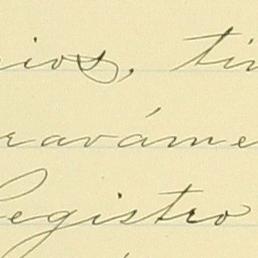 rios, tin
raváme
Registro